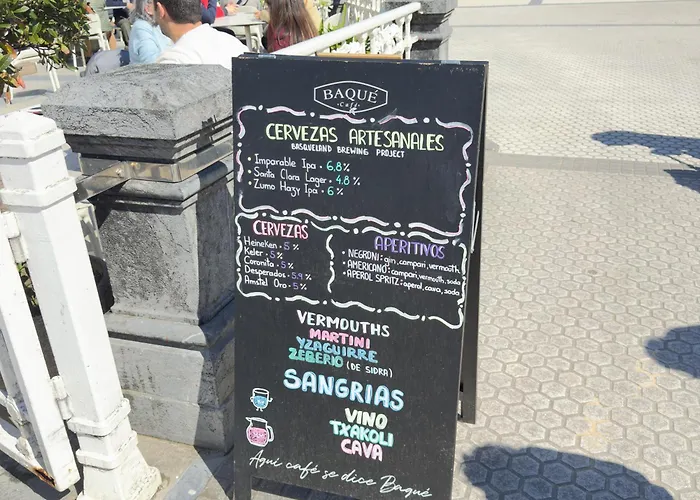 BAQUÉ
Café
CERVEZAS ARTESANALES
BASQUELAND BREWING PROJECT
• Imparable Ipa • 6,8%
• Santa Clara Lager • 4.8 %
• Zumo Hazy Ipa • 6 %
CERVEZAS
Heineken • 5 %
Keler • 5 %
Coronita • 5 %
Desperados • 5.9 %
Amstel Oro • 5 %
APERITIVOS
• NEGRONI: gin, campari, vermouth
• AMERICANO: campari, vermouth, soda
• APEROL SPRITZ: aperol, cava, soda
VERMOUTHS
MARTINI
YZAGUIRRE
ZEBERIO (DE SIDRA)
SANGRIAS
VINO
TXAKOLI
CAVA
Aquí café se dice Baqué